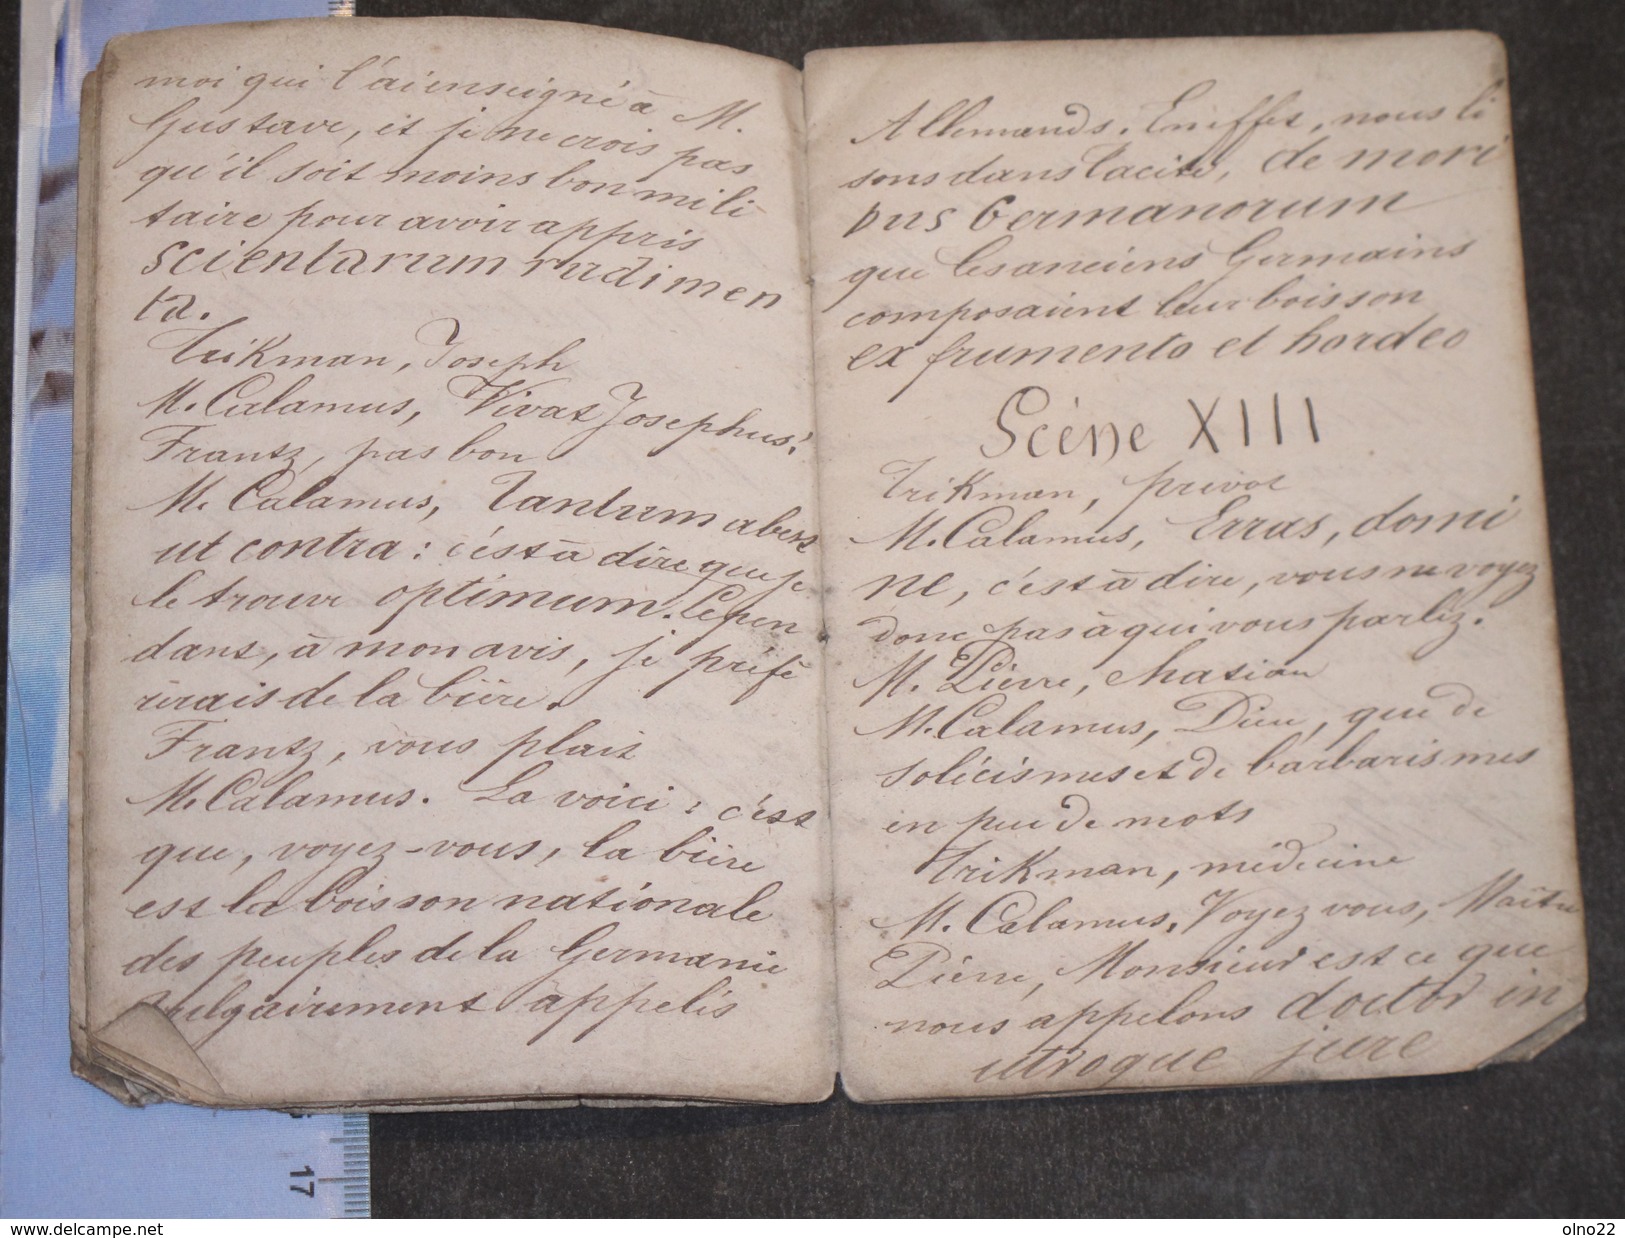 moi qui l'ai enseigné à M.
Gustave, et je ne crois pas
qu'il soit moins bon mili
taire pour avoir appris
scientarum rudimen
ta.
Trikman, Joseph
M. Calamus, Vivat Josephus!
Frantz, pas bon
M. Calamus, Tantum abest
ut contra : c'est à dire que je
le trouve optimum. Cepen
dant, à mon avis, je préfé
rerais de la bière.
Frantz, vous plait
M. Calamus. La voici : c'est
que, voyez-vous, la bière
est la boisson nationale
des peuples de la Germanie
vulgairement appelés
Allemands. En effet, nous li
sons dans Tacite, de mori
bus Germanorum
que les anciens Germains
composaient leur boisson
ex frumento et hordeo
Scène XIII
Trikman, prévot
M. Calamus, Erras, domi
ne, c'est à dire, vous ne voyez
donc pas à qui vous parlez.
M. Pierre, chasian
M. Calamus, Dieu, que de
solécismes et de barbarismes
en peu de mots
Trikman, médecine
M. Calamus. Voyez vous, Maître
Pierre, Monsieur est ce que
nous appelons doctor in
utroque jure
17
www.delcampe.net
olno22